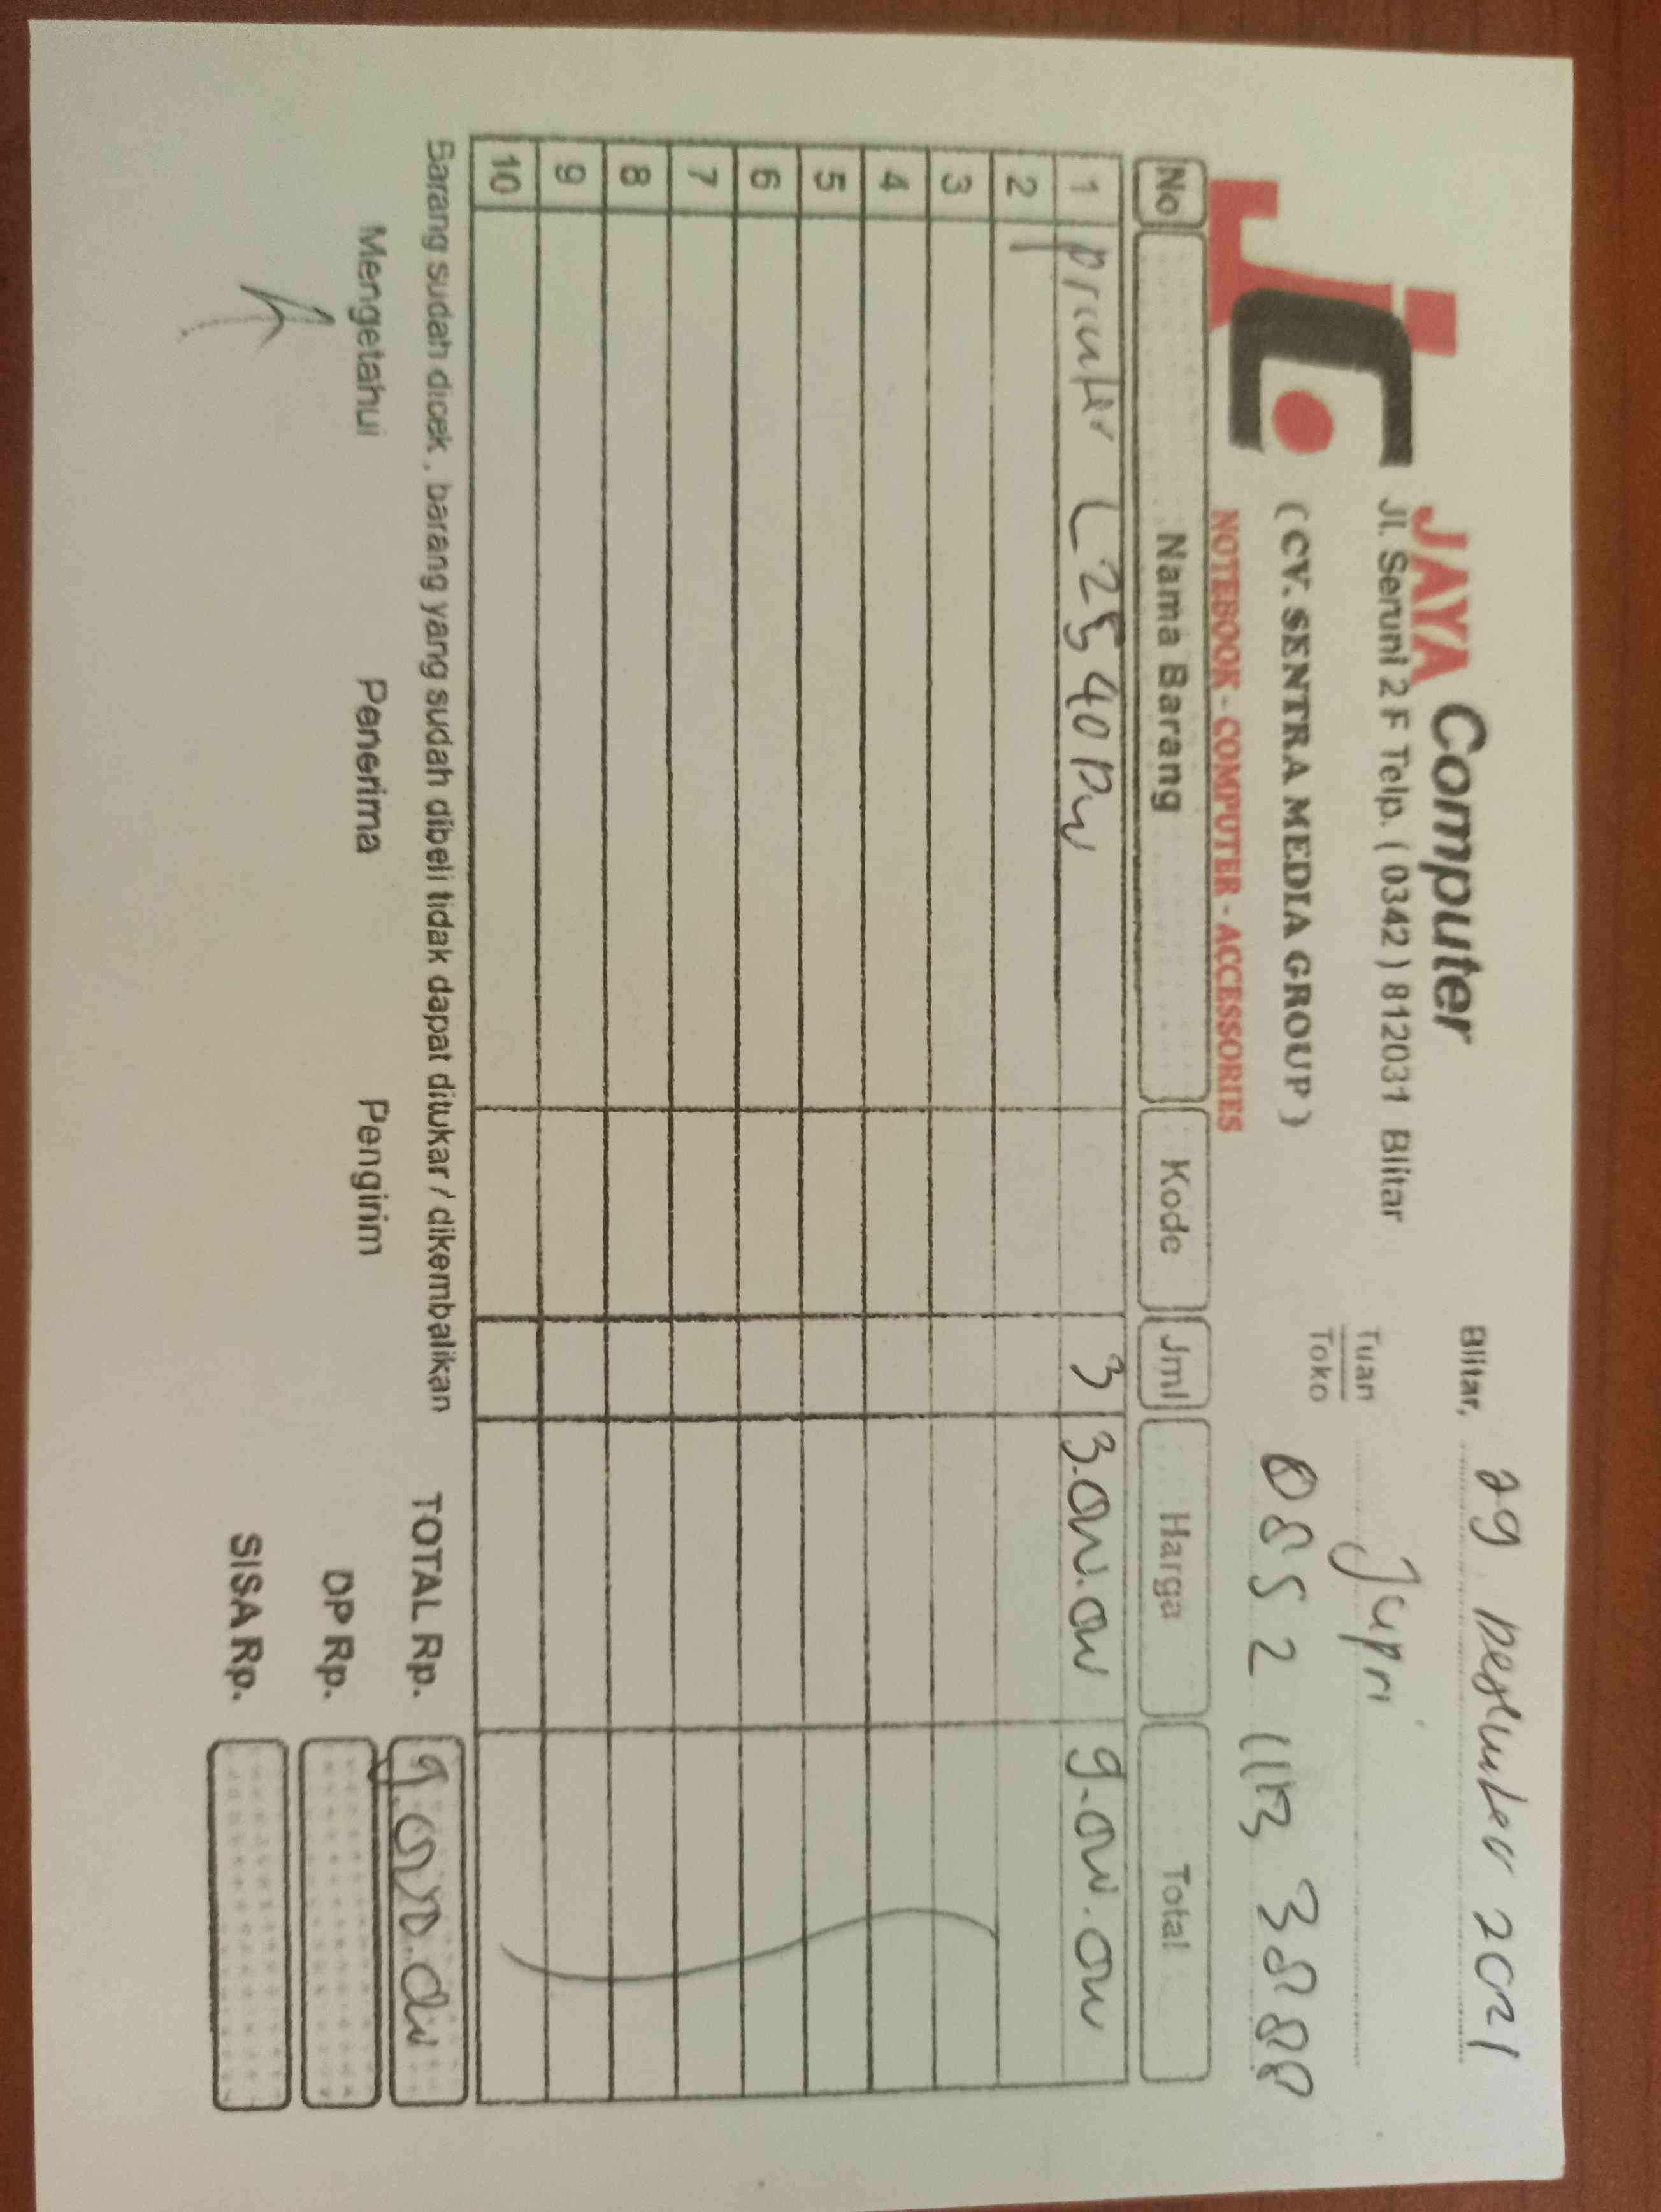 JAYA Computer
Jl. Seruni 2 F Telp. ( 0342 ) 812031 Blitar
( CV. SENTRA MEDIA GROUP )
NOTEBOOK - COMPUTER - ACCESSORIES
Blitar, 29 Desember 2021
Tuan Jupri
Toko
0852 1113 3888
No Nama Barang Kode Jml Harga Total
1 Printer L 2540 DW 3 3.000.000 9.000.000
2
3
4
5
6
7
8
9
10
Barang sudah dicek, barang yang sudah dibeli tidak dapat ditukar / dikembalikan
TOTAL Rp. 9.000.000
Mengetahui Penerima Pengirim
DP Rp.
SISA Rp.